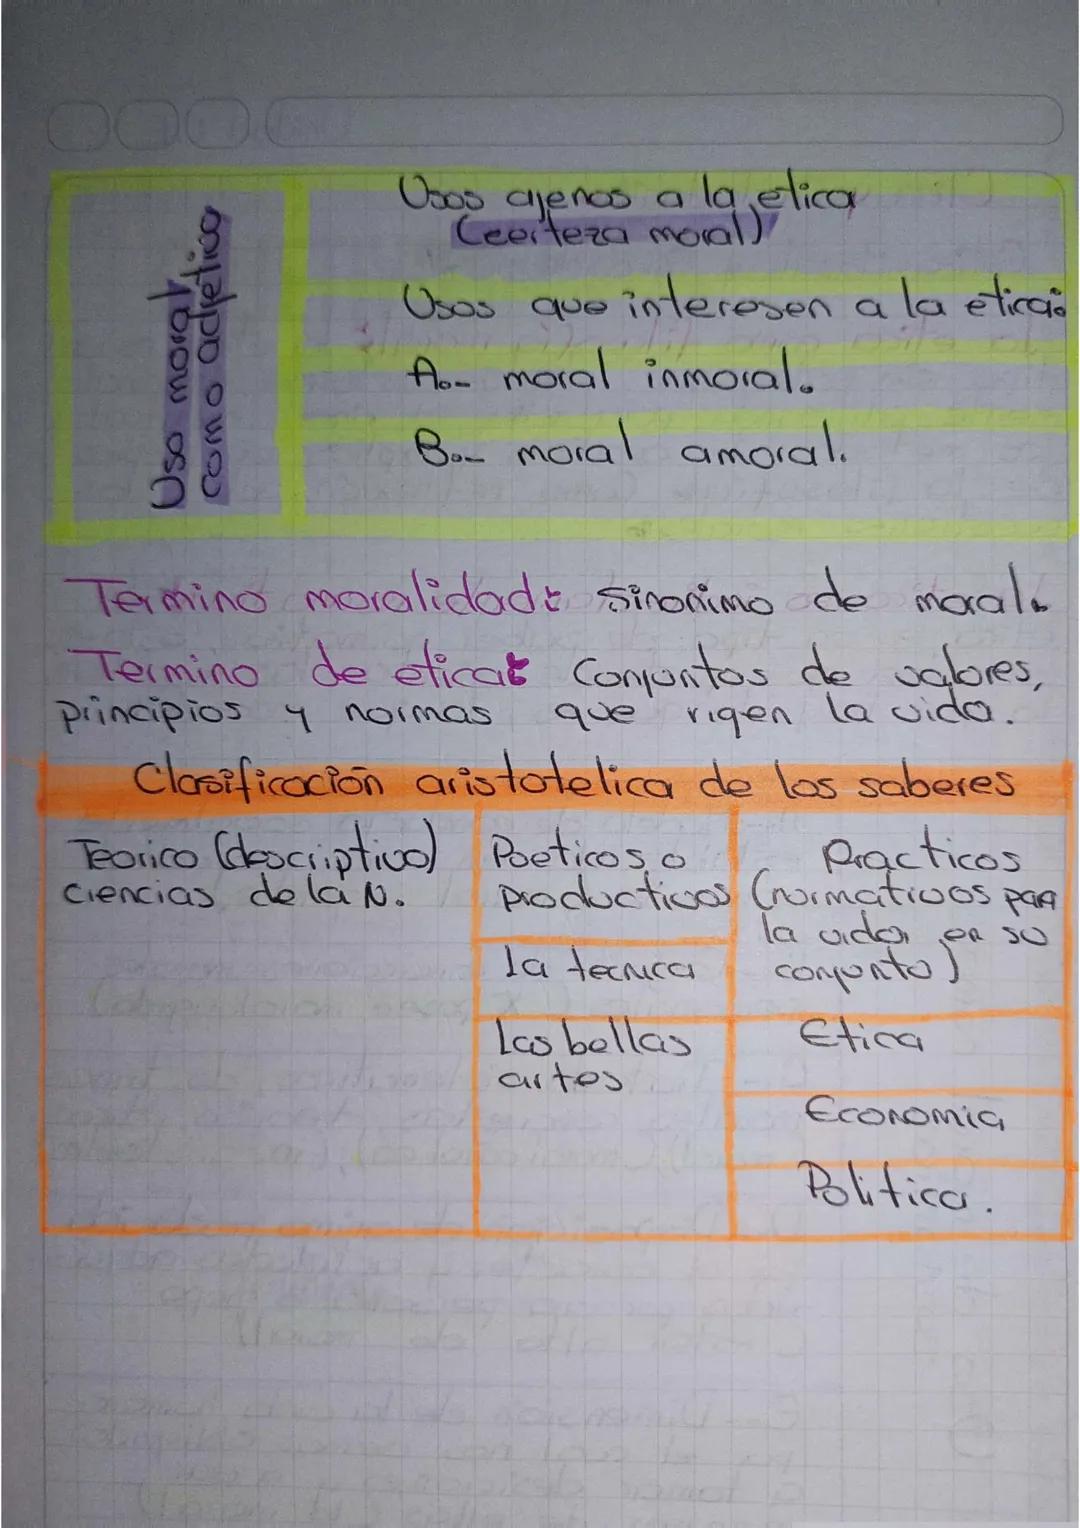 Uso moral
como adjetivo
Usos ajenos a la etica
(certeza moral)
Usos que interesen a la etica:
A.- moral inmoral.
B.- moral amoral.
Termino moralidad: sinonimo de moral.
Termino de etica: Conjuntos de valores,
principios y normas que rigen la vida.
Clasificación aristotelica de los saberes
Teorico (descriptivo)
ciencias de la N.
Poeticos o
productivos
la tecnica
Las bellas
artes
Practicos
(normativos para
la vida en su
conjunto)
Etica
Economia
Politica.